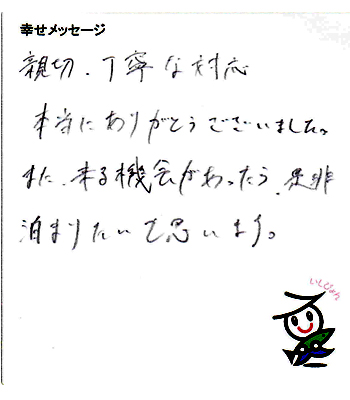 幸せメッセージ
親切、丁寧な対応
本当にありがとうございました。
また、来る機会があったら、是非
泊まりたいと思います。